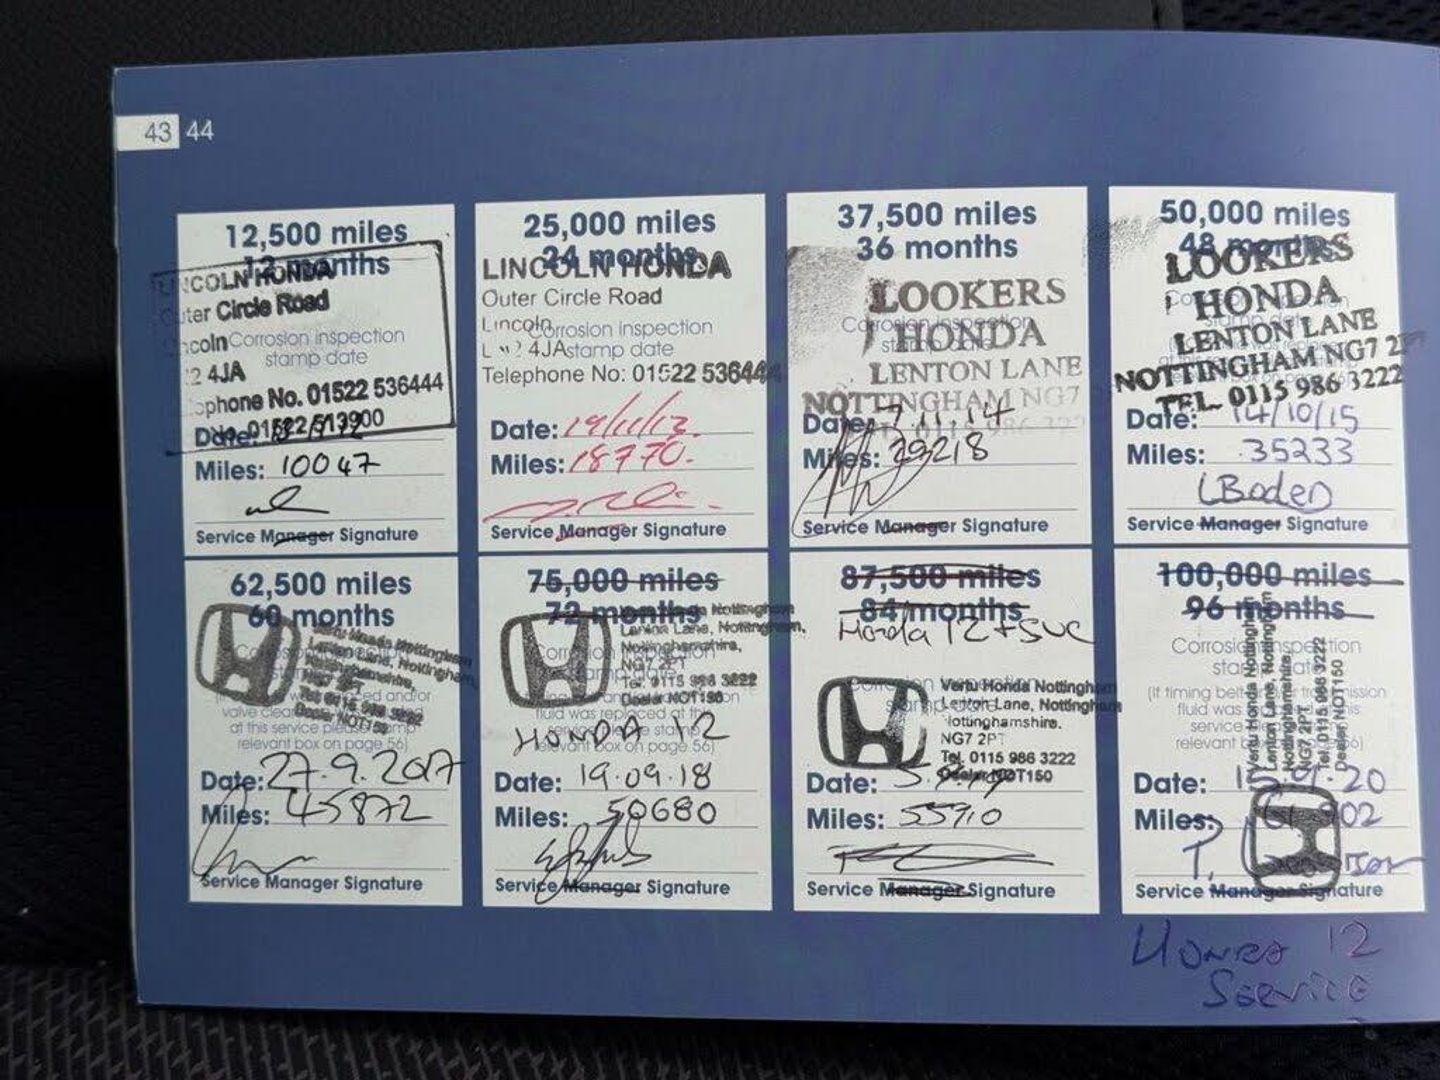 43 44
12,500 miles
12 months
LINCOLN HONDA
Outer Circle Road
Lincoln
Corrosion inspection
stamp date
2 4JA
phone No. 01522 536444
No. 01522 513900
Date:
Miles: 10047
Service Manager Signature
25,000 miles
24 months
LINCOLN HONDA
Outer Circle Road
Lincoln
Corrosion inspection
4JA
stamp date
Telephone No: 01522 536444
Date: 19/11/12.
Miles: 18770.
Service Manager Signature
37,500 miles
36 months
LOOKERS
Corrosion inspection
stamp date
HONDA
LENTON LANE
NOTTINGHAM NG7
Date: 7.1.14
Miles: 29218
Service Manager Signature
50,000 miles
48 months
LOOKERS
HONDA
LENTON LANE
NOTTINGHAM NG7 2
TEL. 0115 986 3222
Date: 14/10/15
Miles: 35233
LBoden
Service Manager Signature
62,500 miles
60 months
Vertu Honda Nottingham
Lenton Lane, Nottingham,
Nottinghamshire,
NG7 2PT
Tel. 0115 986 3222
Dealer NOT150
at this service please stamp
relevant box on page 56)
Date: 27.9.2017
Miles: 45872
Service Manager Signature
75,000 miles
72 months
Vertu Honda Nottingham
Lenton Lane, Nottingham,
Nottinghamshire,
NG7 2PT
Tel. 0115 986 3222
Dealer NOT150
fluid was replaced at this
HONDA 12
relevant box on page 56)
Date: 19.09.18
Miles: 50680
Service Manager Signature
87,500 miles
84 months
Honda 12 + SVC
Vertu Honda Nottingham
Lenton Lane, Nottingham
Nottinghamshire.
NG7 2PT
Tel. 0115 986 3222
Dealer NOT150
Date:
Miles: 55910
Service Manager Signature
100,000 miles
96 months
Corrosion inspection
stamp date
(If timing belt or transmission
fluid was
service
relevant
Vertu Honda Nottingham
Lenton Lane, Nottingham
Nottinghamshire.
NG7 2PT
Tel. 0115 986 3222
Dealer NOT150
Date: 15.9.20
Miles: 61902
Service Manager Signature
HONDA 12
SERVICE